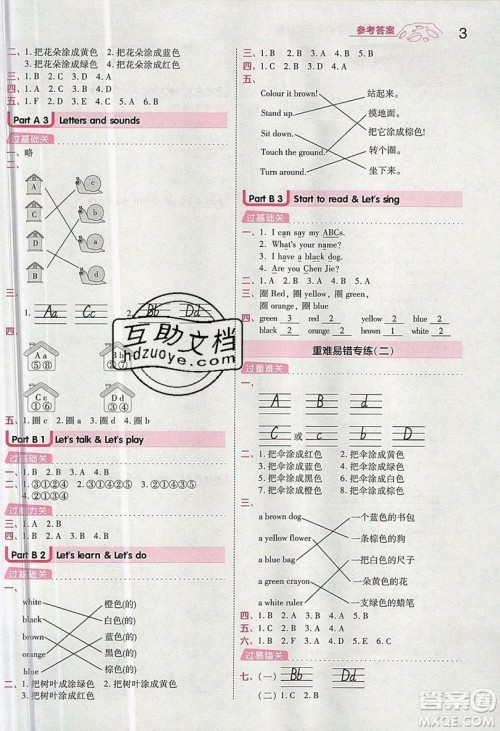 参考答案
3
二、1. 把花朵涂成黄色 2. 把花朵涂成蓝色
3. 把花朵涂成绿色 4. 把花朵涂成红色
四、1. B 2. C 3. D 4. A
五、1. F 2. F 3. T 4. T 5. T
Part A 3 Letters and sounds
过基础关
一、略
二、
A a
B b
C c
D d
三、
1. A a C c 2. B b D d
四、
Aa ⑤⑧
Dd ①④
五、1. 圈
Part B 1 Let's talk & Let's play
过基础关
一、③①②④
二、1. B 2. B 3. A 4. B
三、1. ③①②④ 2. ④①③②
过能力关
四、1. B 2. C 3. D 4. A
Part B 2 Let's learn & Let's do
过基础关
一、
white 橙色(的)
black 白色(的)
brown 蓝色(的)
orange 黑色(的)
blue 棕色(的)
二、1. 把树叶涂成绿色 2. 把树叶涂成橙色
3. 把树叶涂成黄色 4. 把树叶涂成棕色
三、1. B 2. B 3. A 4. A
四、1. B 2. A 3. C
五、
Colour it brown! 站起来。
Stand up. 摸地面。
Sit down. 把它涂成棕色!
Touch the ground. 转个圈。
Turn around. 坐下来。
Part B 3 Start to read & Let's sing
过基础关
一、1. I can say my ABCs.
2. What's your name?
3. I have a black dog.
4. Are you Chen Jie?
三、圈 Red，圈 yellow，圈 green，
圈 blue，圈 orange
四、green 3 red 2 yellow 2
orange 2 blue 2 white 2
重难易错专练(二)
过重难关
一、
A D
C 或 c d
二、1. 把伞涂成红色 2. 把伞涂成棕色
3. 把伞涂成黑色 4. 把伞涂成黄色
5. 把伞涂成绿色 6. 把伞涂成橙色
三、
a brown dog 一个蓝色的书包
a yellow flower 一条棕色的狗
a blue bag 一把白色的尺子
a green crayon 一朵黄色的花
a white ruler 一支绿色的蜡笔
四、1. B 2. B 3. A 4. B 5. A
五、1. B 2. C 3. A
六、1. B 2. A 3. B 4. A 5. B
过易错关
七、(一) Bb Dd
(二) 1. C 2. B
互助文档
hdzuoye.com
答案圈
MXQE.COM